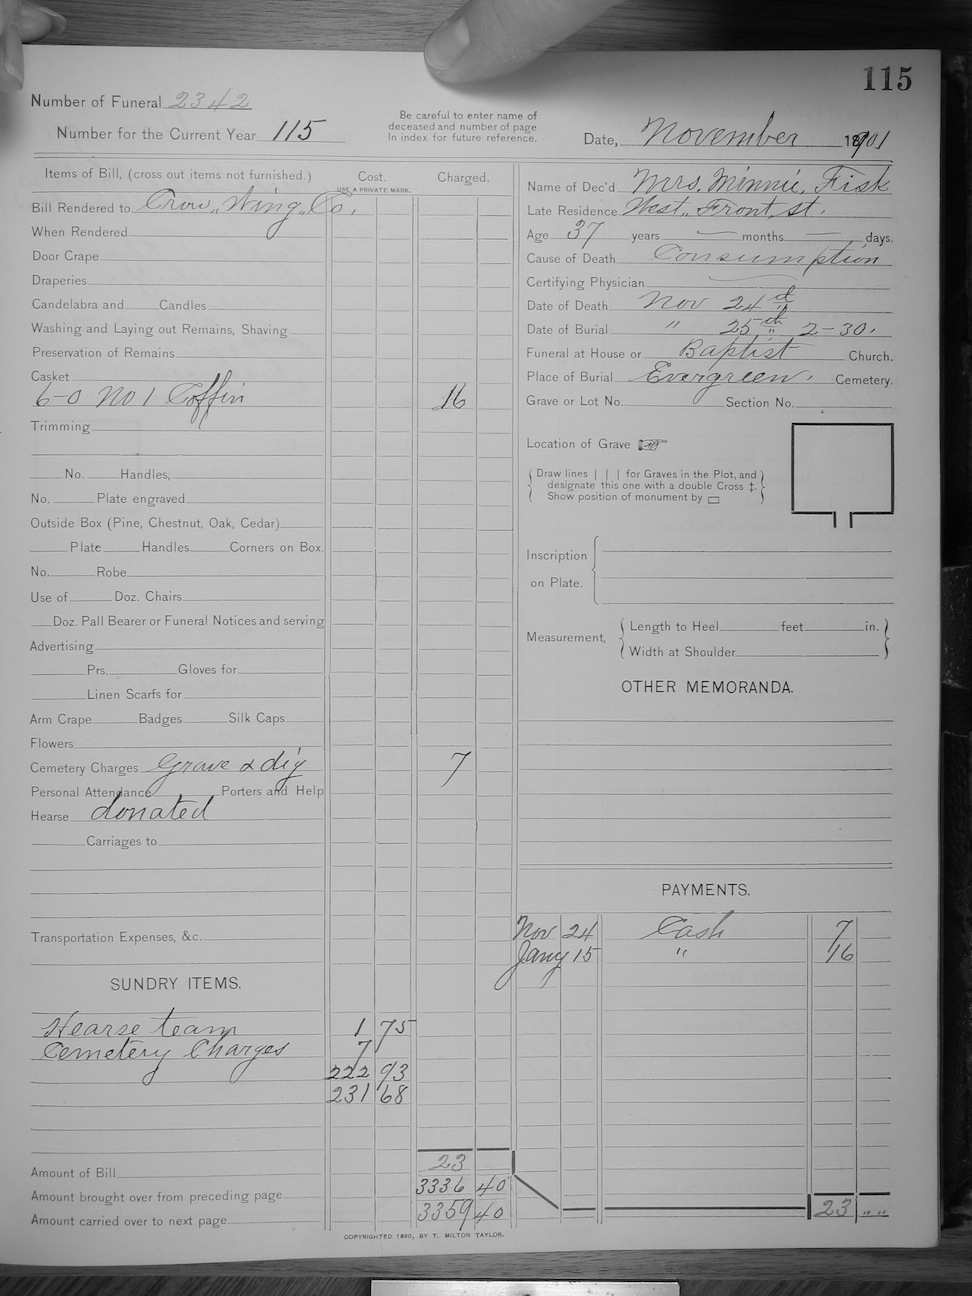 115
Number of Funeral 2342
Number for the Current Year 115
Be careful to enter name of
deceased and number of page
in index for future reference.
Date, November 1901
Items of Bill, (cross out items not furnished.)
Cost.
USE A PRIVATE MARK.
Charged.
Bill Rendered to Crow Wing Co.
When Rendered
Door Crape
Draperies
Candelabra and Candles
Washing and Laying out Remains, Shaving
Preservation of Remains
Casket
6-0 No 1 Coffin 16
Trimming
No. Handles,
No. Plate engraved
Outside Box (Pine, Chestnut, Oak, Cedar)
Plate Handles Corners on Box.
No. Robe
Use of Doz. Chairs
Doz. Pall Bearer or Funeral Notices and serving
Advertising
Prs. Gloves for
Linen Scarfs for
Arm Crape Badges Silk Caps
Flowers
Cemetery Charges Grave & dig 7
Personal Attendance Porters and Help
Hearse donated
Carriages to
Transportation Expenses, &c.
SUNDRY ITEMS.
Hearse team 1 75
Cemetery Charges 7
222 93
231 68
Amount of Bill 23
Amount brought over from preceding page 3336 40
Amount carried over to next page 3359 40
Name of Dec'd Mrs, Minnie, Fisk
Late Residence West,, Front, st.
Age 37 years — months — days.
Cause of Death Consumption
Certifying Physician
Date of Death Nov 24
Date of Burial " 25th 2-30.
Funeral at House or Baptist Church.
Place of Burial Evergreen. Cemetery.
Grave or Lot No. Section No.
Location of Grave
Draw lines | | | for Graves in the Plot, and
designate this one with a double Cross ‡.
Show position of monument by ▭
Inscription
on Plate.
Measurement,
Length to Heel feet in.
Width at Shoulder
OTHER MEMORANDA.
PAYMENTS.
Nov 24 Cash 7
Jany 15 " 16
23 " "
COPYRIGHTED 1890, BY T. MILTON TAYLOR.